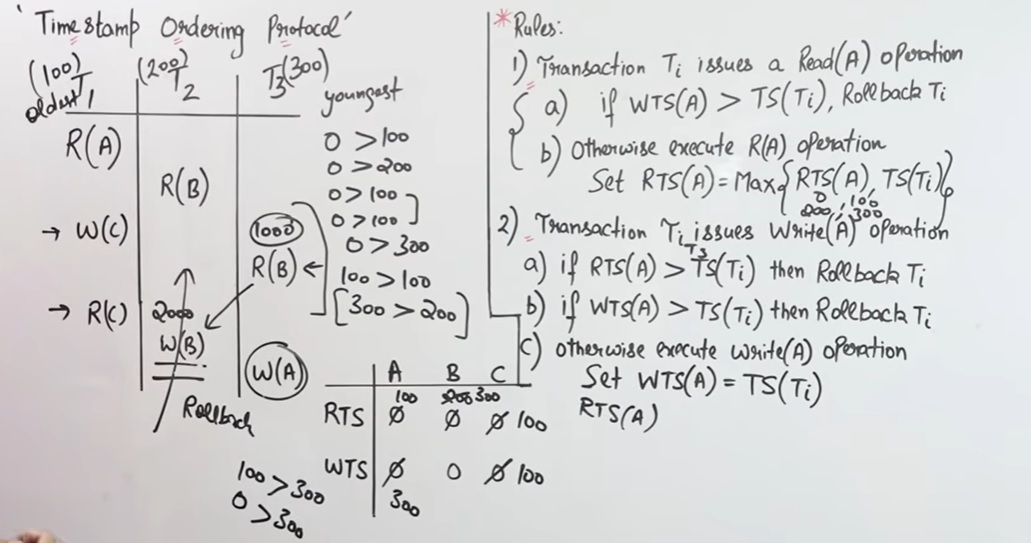 'Timestamp Ordering Protocol'
(100) (200) (300)
T1 T2 T3
oldest youngest
R(A)
R(B)
→ W(C)
1000
R(B) ←
→ R(C)
2000
W(B)
W(A)
Rollback
0 > 100
0 > 200
0 > 100
0 > 100
0 > 300
100 > 100
[300 > 200]
100 > 300
0 > 300
A B C
100 200 300
RTS 0 0 0 100
WTS 0 0 0 100
300
*Rules:
1) Transaction Ti issues a Read(A) operation
a) if WTS(A) > TS(Ti), Rollback Ti
b) Otherwise execute R(A) operation
Set RTS(A) = Max{RTS(A), TS(Ti)}
0, 100
200, 300
2) Transaction Ti issues Write(A) operation
T3
a) if RTS(A) > TS(Ti) then Rollback Ti
b) if WTS(A) > TS(Ti) then Rollback Ti
c) otherwise execute Write(A) operation
Set WTS(A) = TS(Ti)
RTS(A)